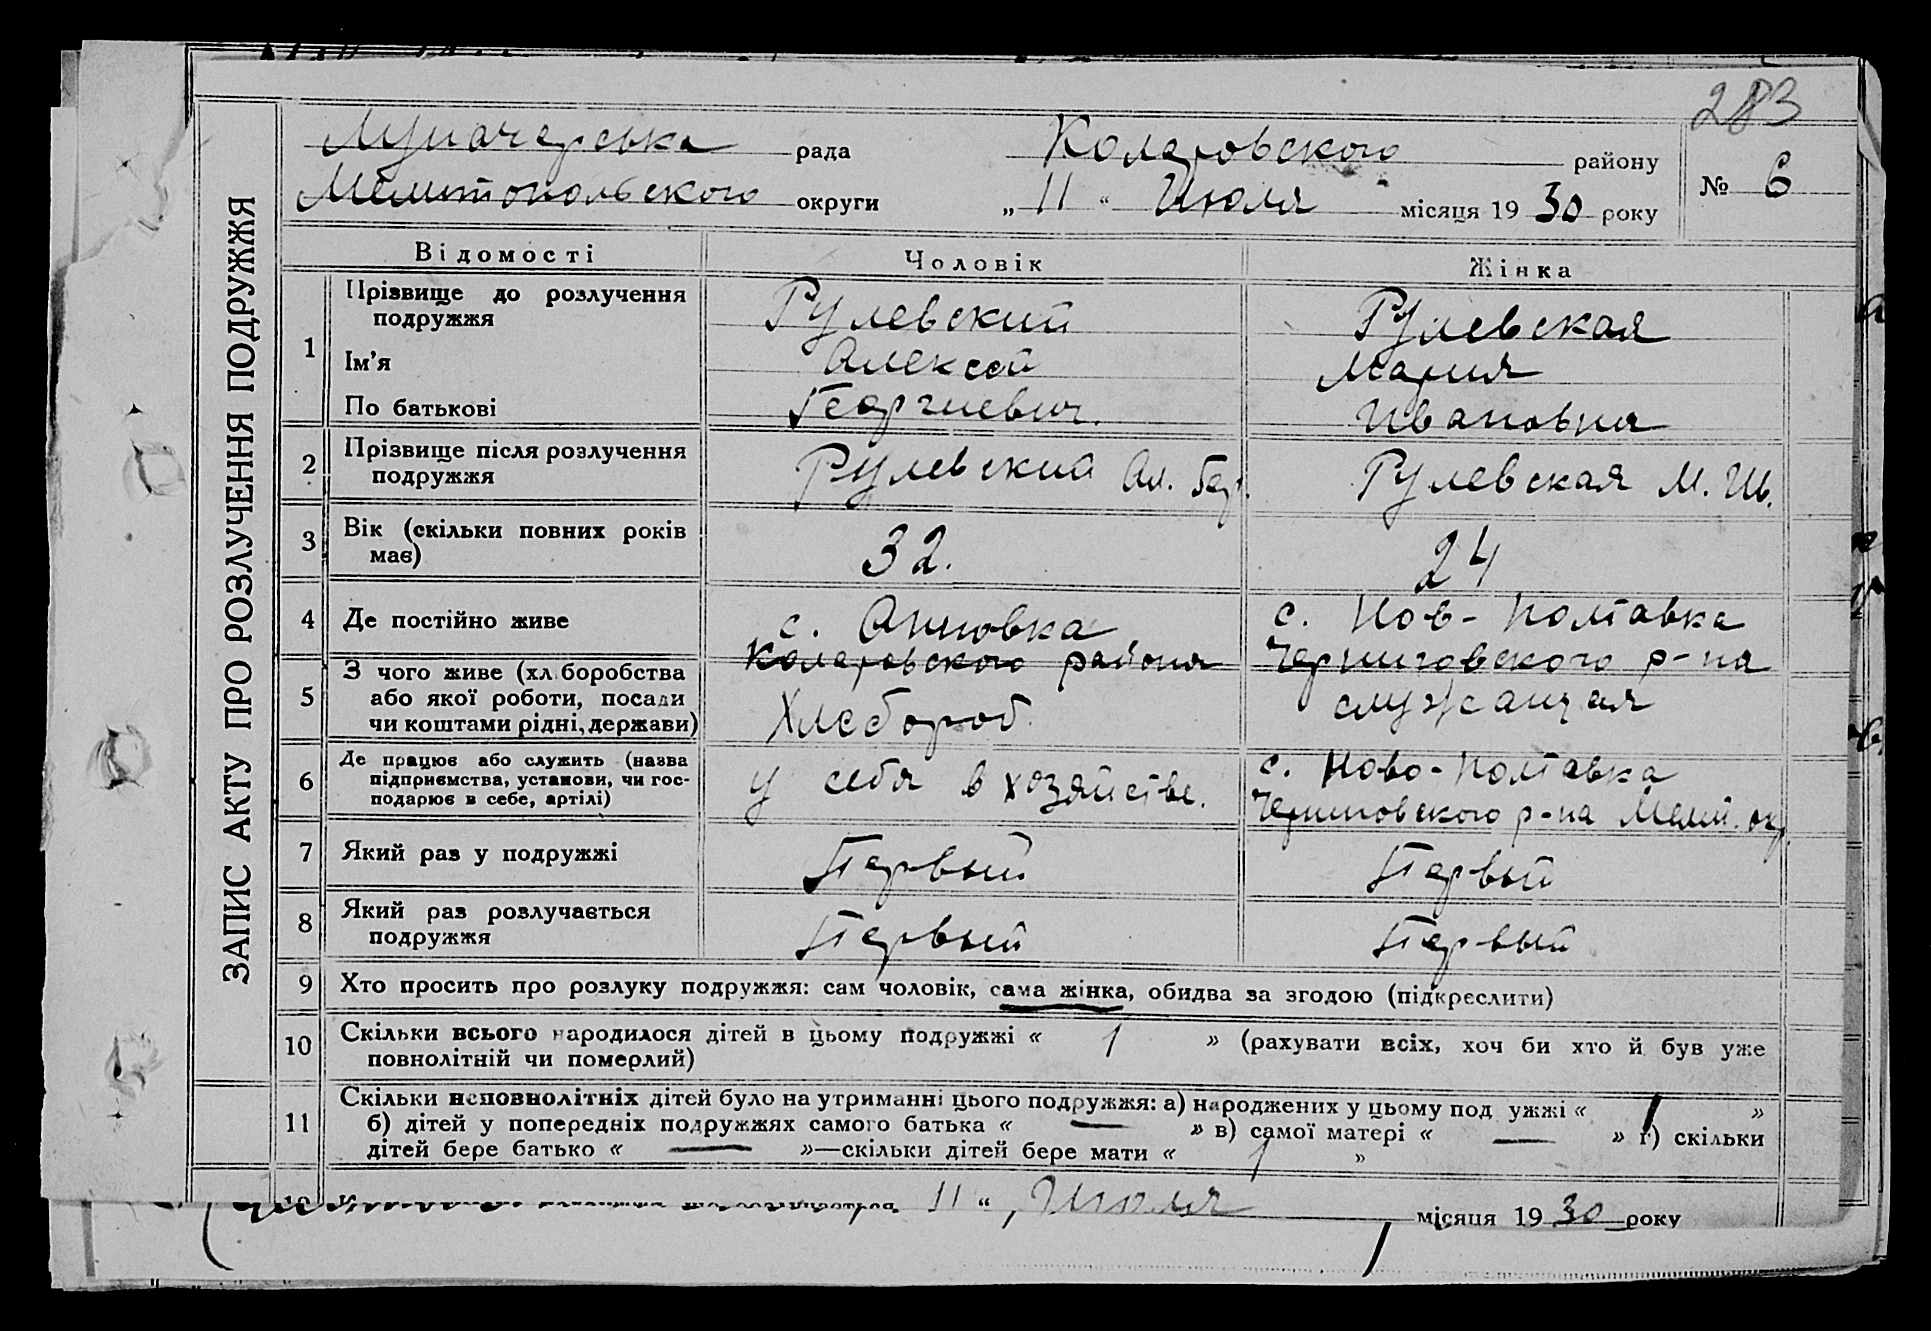 283
Луначарська рада Коларовского району
№ 6
Мелитопольского округи „ 11 “ Июля місяця 1930 року
ЗАПИС АКТУ ПРО РОЗЛУЧЕННЯ ПОДРУЖЖЯ
Відомості Чоловік Жінка
1 Прізвище до розлучення подружжя Рулевский Рулевская
Ім’я Алексей Мария
По батькові Георгиевич. Ивановна
2 Прізвище після розлучення подружжя Рулевский Ал. Гео. Рулевская М. Ив.
3 Вік (скільки повних років має) 32. 24
4 Де постійно живе с. Анновка Коларовского района с. Нов-Полтавка Черниговского р-на
5 З чого живе (хліборобства або якої роботи, посади чи коштами рідні, держави) Хлебороб. служащая
6 Де працює або служить (назва підприємства, установи, чи господарює в себе, артілі) у себя в хозяйстве. с. Ново-Полтавка Черниговского р-на Мелит. окр.
7 Який раз у подружжі Первый Первый
8 Який раз розлучається подружжя Первый Первый
9 Хто просить про розлуку подружжя: сам чоловік, сама жінка, обидва за згодою (підкреслити)
10 Скільки всього народилося дітей в цьому подружжі « 1 » (рахувати всіх, хоч би хто й був уже
повнолітній чи померлий)
11 Скільки неповнолітніх дітей було на утриманні цього подружжя: а) народжених у цьому подружжі « 1 »
б) дітей у попередніх подружжях самого батька « — » в) самої матері « — » г) скільки
дітей бере батько « — »—скільки дітей бере мати « 1 »
11 “ Июля місяця 1930 року